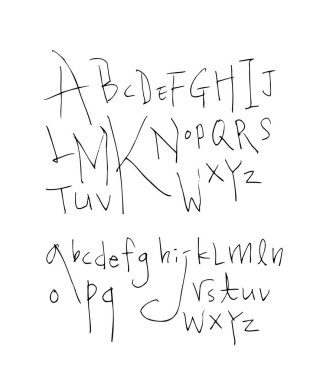 ABCDEFGHIJ
LMKNOPQRS
TUVWXYZ
abcdefghijkLmln
opqrstuv
wxyz